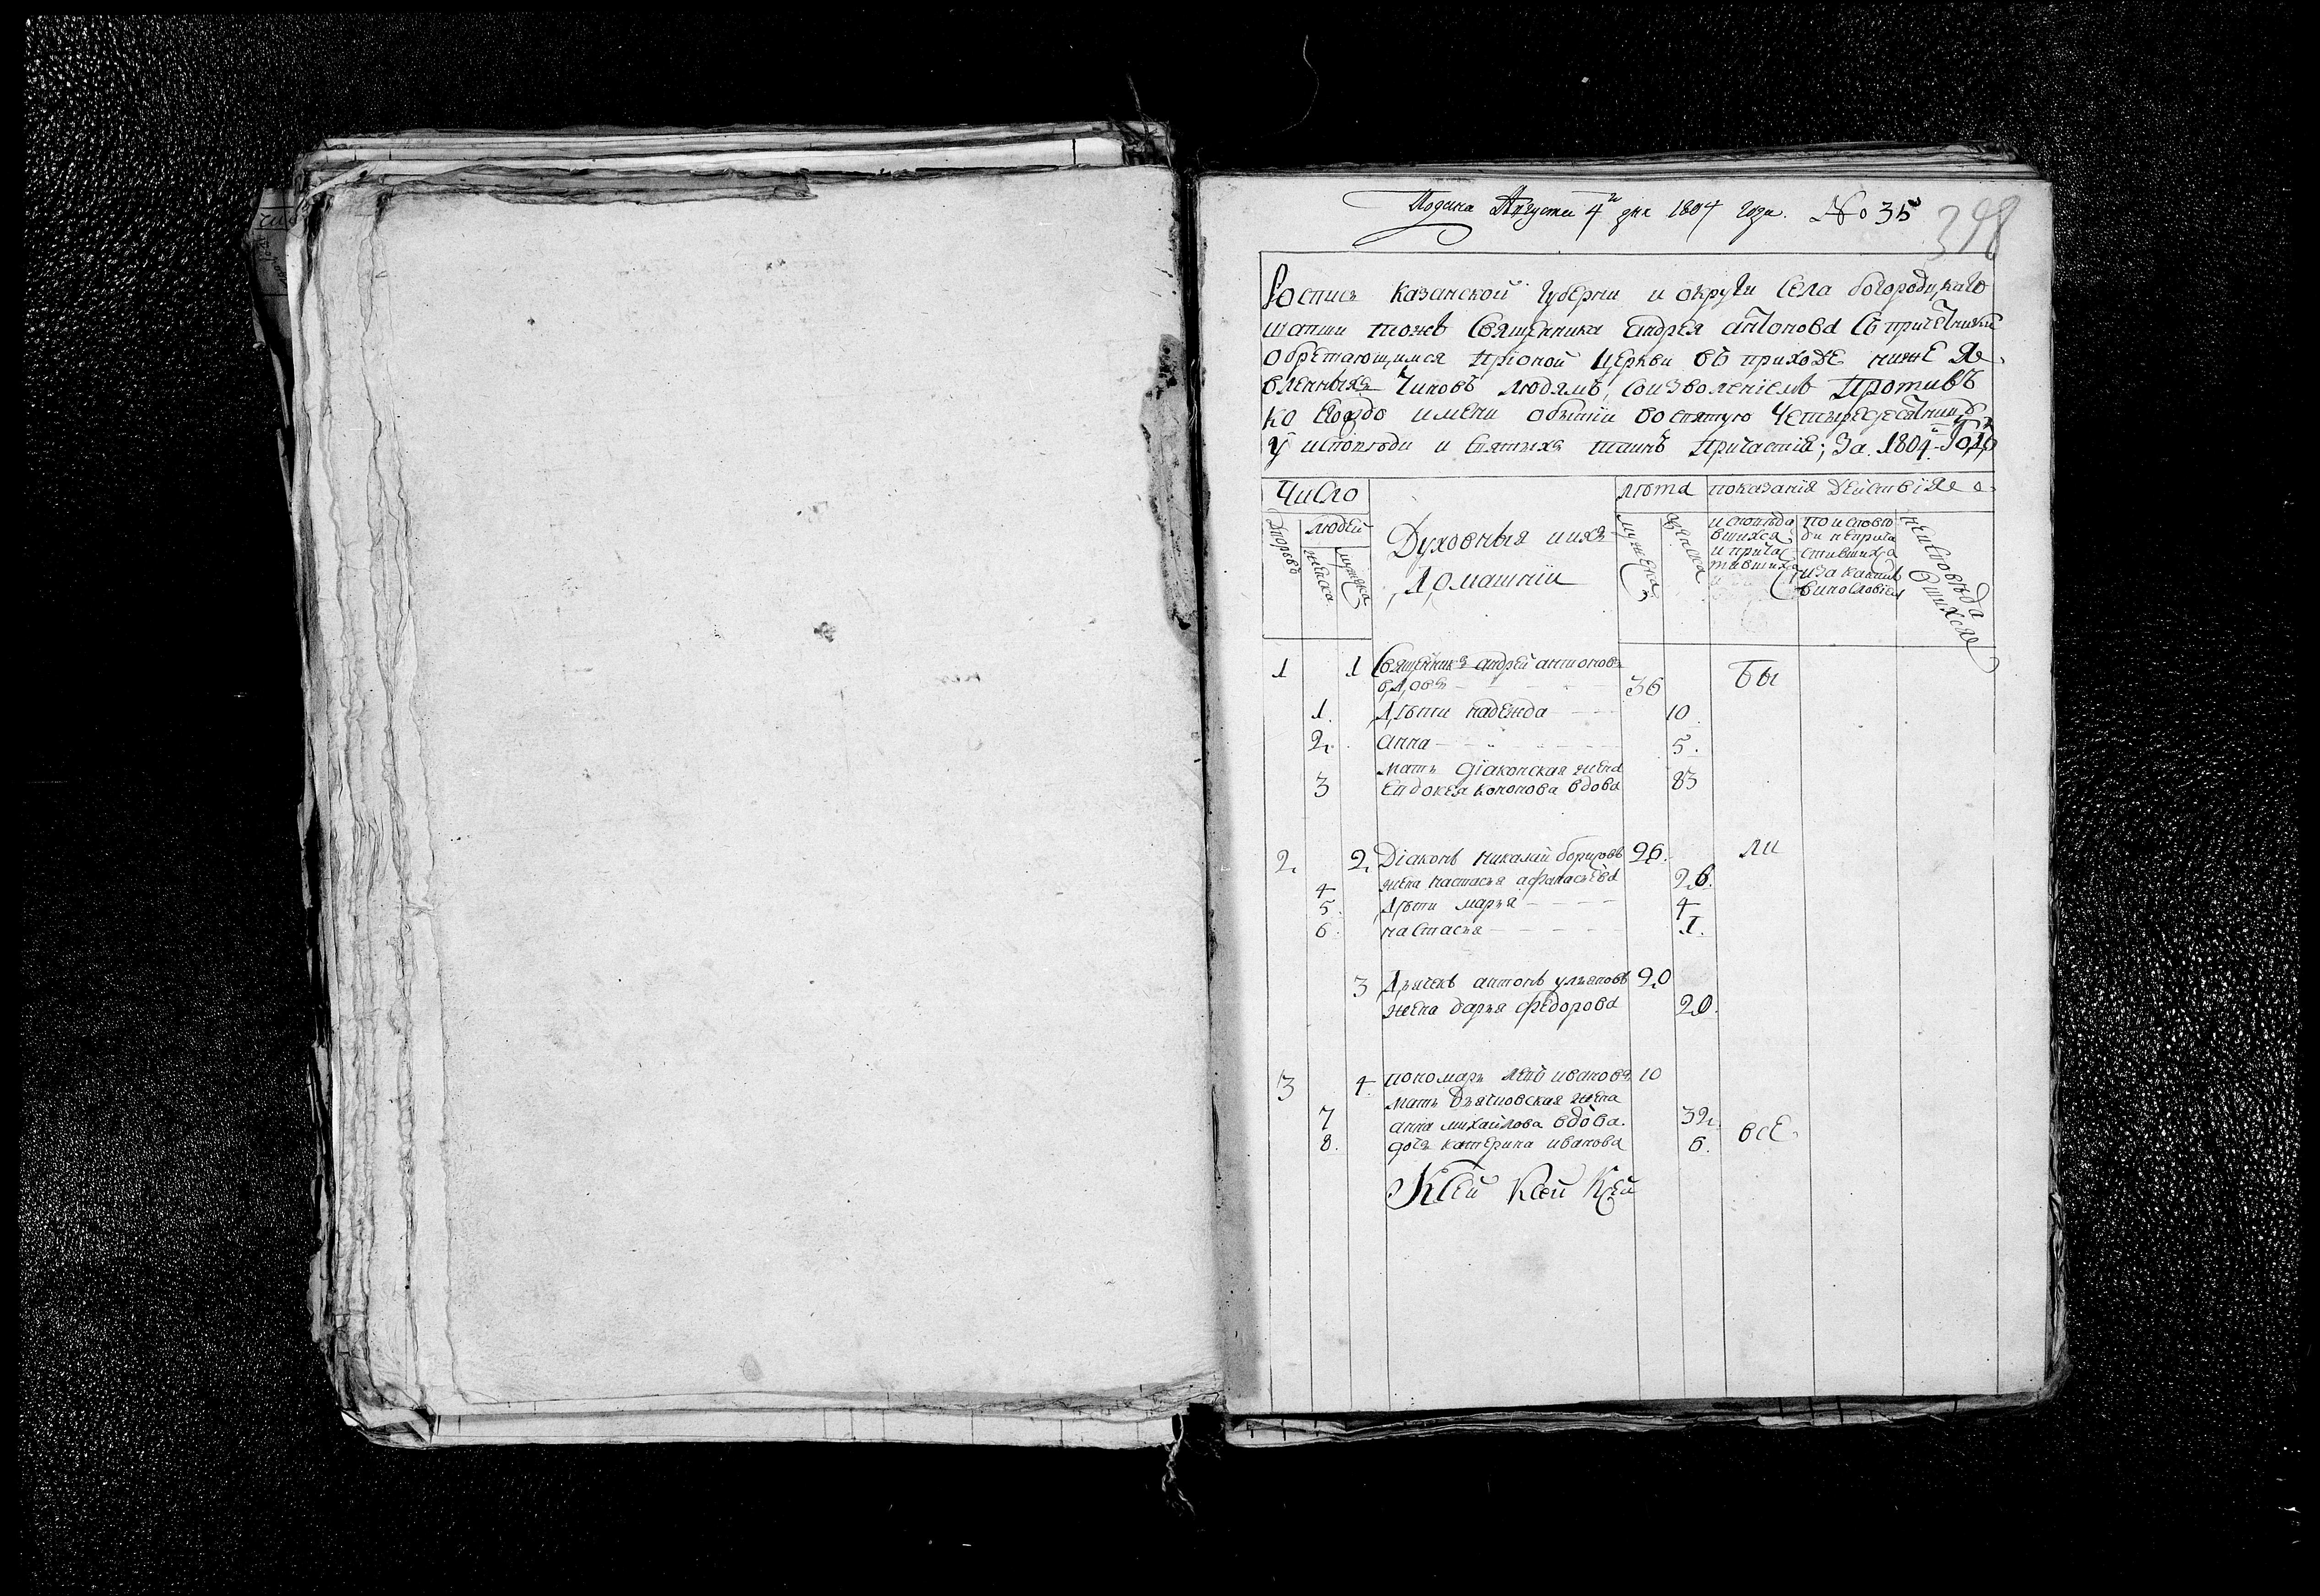 Подана Августа 4го дня 1804 года. № 35
398
Роспись Казанской губернии и округи села богородицкаго
шапши тожъ священника андрея антонова съ причетники
обретающимся при оной церкви въ приходе ниже яв
вленныхъ чиновъ людямъ, соизволениемъ противъ
коегождо имени о бытии во святую четыредесятницу
у исповѣди и святыхъ таинъ причастия; За 1804й Годъ
Число лѣта показания действия
Дворовъ людей женска мужска
Духовныя и ихъ
домашнии
мужеска женска
исповѣда
вшихся
и причас
тившихся
по исповѣ
ди не прича
стившихся
и за какимъ
винословием
неисповѣда
вшихся
1 1 Священникъ андрей антоновъ
вдовъ 36 бы
1. Дѣти надежда 10.
2. анна 5.
мать диаконская жена
3 евдокея кононова вдова 83
2. 2. Диаконъ николай борисовъ 26. ли
4 жена настасья афанасьева 26.
5. Дѣти марья 4
6. настасья 1.
3 Дьячекъ антонъ ульяновъ 20
жена дарья федорова 20.
3 4. пономарь левъ ивановъ 10
мать дьячковская жена
7 анна михайлова вдова. 32.
8. дочь катерина иванова 6. все